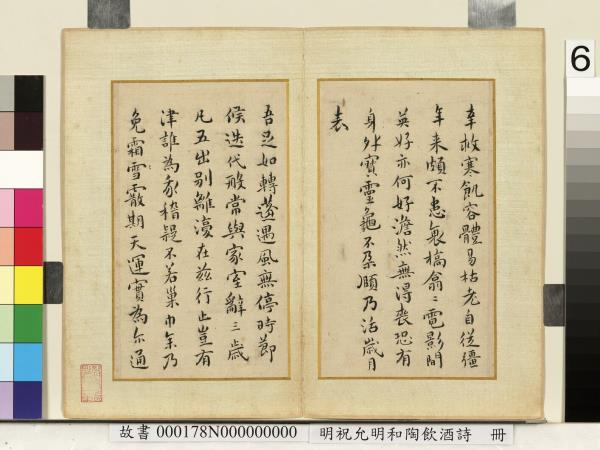 幸救寒飢容體易枯老自從彊
年来頗不患衰槁翕〻電影間
英好亦何好澹然無得喪恐有
身外寶靈龜不朶頤乃活歲月
表
吾足如轉蓬遇風無停時節
候迭代般常與家室辭三歲
凡五出別離在兹行止豈有
津誰為我稽疑不若巢巾乃
免霜雪霰期天運實為尒通
6
故書 000178N000000000 明祝允明和陶飲酒詩 冊